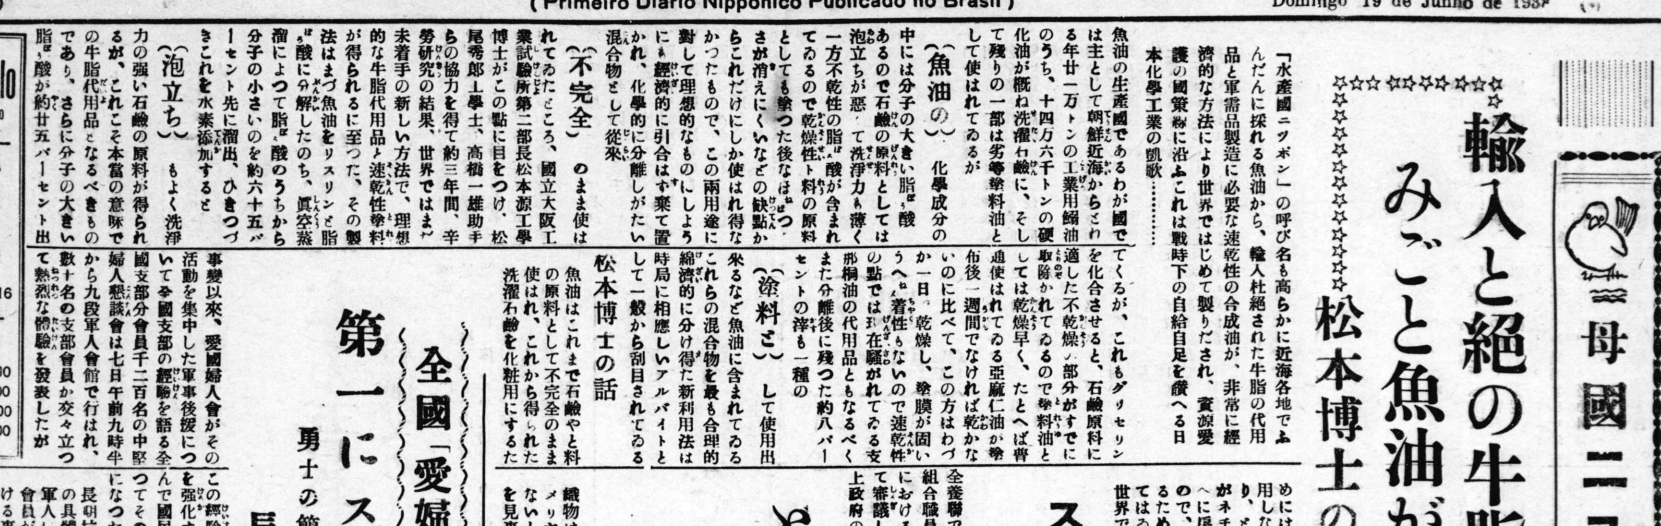 (Primeiro Diario Nipponico Publicado no Brasil)
Domingo 19 de Junho de 193
母國ニ
輸入と絶の牛
みごと魚油が
松本博士の
「水產國ニツポン」の呼び名も高らかに近海各地でふ
んだんに採れる魚油から、輸入杜絕された牛脂の代用
品と軍需品製造に必要な速乾性の合成油が、非常に經
濟的な方法により世界ではじめて製りだされ、資源愛
護の國策線に沿ふこれは戰時下の自給自足を讃へる日
本化學工業の凱歌………
魚油の生產國であるわが國で
は主として朝鮮近海からとれ
る年廿一万トンの工業用鰯油
のうち、十四万六千トンの硬
化油が概ね洗濯石鹼に、そし
て殘りの一部は劣等塗料油と
して使はれてゐるが
(魚油の) 化學成分の
中には分子の大きい脂肪酸
あるので石鹼の原料としては
泡立ちが惡って洗淨力も薄く
一方不乾性の脂肪酸が含まれ
てゐるので乾燥性塗料の原料
としても塗つた後なほねつ
さが消えにくいなどの缺點か
らこれだけにしか使はれ得な
かつたもので、この兩用途に
對して理想的なものにしよう
にも經濟的に引合はず棄て置
かれ、化學的に分離しがたい
混合物として從來
(不完全) のまま使は
れてゐたところ、國立大阪工
業試驗所第二部長松本源工學
博士がこの點に目をつけ、松
尾秀郎工學士、高橋一雄助手
らの協力を得て約三年間、辛
勞研究の結果、世界ではまだ
未着手の新しい方法で、理想
的な牛脂代用品と速乾性塗料
が得られるに至つた、その製
法はまづ魚油をリスリンと脂
肪酸に分解したのち、眞空蒸
溜によつて脂肪酸のうちから
分子の小さいのを約六十五パ
ーセント先に溜出、ひきつづ
きこれを水素添加すると
(泡立ち) もよく洗淨
力の强い石鹼の原料が得られ
るが、これこそ本當の意味で
の牛脂代用品となるべきもの
であり、さらに分子の大きい
脂肪酸が約廿五パーセント出
てくるが、これもグリセリン
を化合させると、石鹼原料に
適した不乾燥の部分がすでに
取除かれてゐるので塗料油と
しては乾燥早く、たとへば普
通使はれてゐる亞麻仁油が塗
布後一週間でなければ乾かな
いのに比べて、この方はわづ
か一日で乾燥し、塗膜が固い
うへねん着性もないので速乾性
の點では現在騷がれてゐる支
那桐油の代用品ともなるべく
また分離後に殘つた約八パー
セントの滓も一種の
(塗料と) して使用出
來るなど魚油に含まれてゐる
これらの混合物を最も合理的
經濟的に分け得た新利用法は
時局に相應しいアルバイトと
して一般から刮目されてゐる
松本博士の話
魚油はこれまで石鹼やと料
の原料として不完全のまま
使はれ、これから得られた
洗濯石鹼を化粧用にするた
全國「愛婦
第一にス
勇士の
事變以來、愛國婦人會がその
活動を集中した軍事後援につ
いて全國支部の經驗を語る全
國支部分會員千二百名の中堅
婦人懇談會は七日午前九時半
から九段軍人會館で行はれ、
數十名の支部會員が交々立つ
て熱烈な體驗を發表したが
この經驗
を强化す
んで國民
つてその
になつた
長朝
の具體
軍人
會員が
ける事
めには
用しな
世界で
全養聯で
組合職員
における
て審議し
上政府の
織物は
メリヤ
ないし
を見事